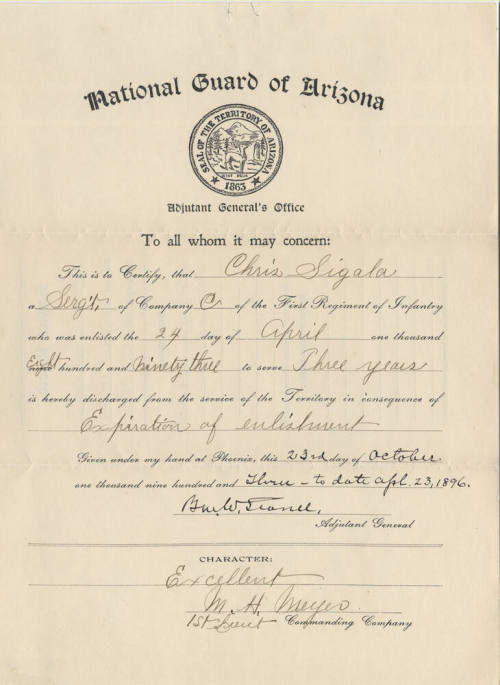 National Guard of Arizona
SEAL OF THE TERRITORY OF ARIZONA
1863
Adjutant General's Office
To all whom it may concern:
This is to Certify, that Chris Sigala
a Serg't, of Company C of the First Regiment of Infantry
who was enlisted the 24 day of April one thousand
Eight nine hundred and ninety three to serve Three years
is hereby discharged from the service of the Territory in consequence of
Expiration of enlistment
Given under my hand at Phoenix, this 23rd day of October
one thousand nine hundred and Three - to date Apl. 23, 1896.
Adjutant General
CHARACTER:
Excellent
M. H. Meyer
1st Lieut Commanding Company